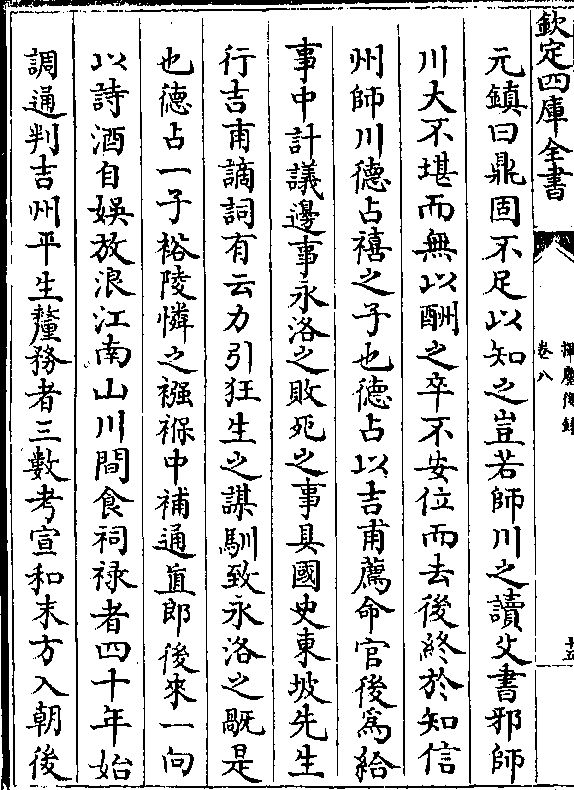 欽定四庫全書
卷八
元鎮曰鼎固不足以知之豈若師川之讀父書邪師
川大不堪而無以酬之卒不安位而去後終於知信
州師川德占禧之子也德占以吉甫薦命官後為給
事中計議邊事永洛之敗死之事具國史東坡先生
行吉甫謫詞有云力引狂生之謀馴致永洛之禍是
也德占一子裕陵憐之襁褓中補通直郎後來一向
以詩酒自娛放浪江南山川間食祠祿者四十年始
調通判吉州平生釐務者三數考宣和末方入朝後